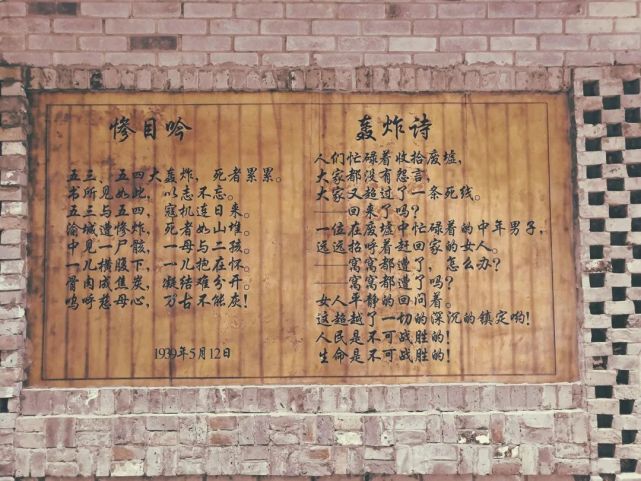 惨目吟
五三、五四大轰炸，死者累累。
书所见如此，以志不忘。
五三与五四，寇机连日来。
渝城遭惨炸，死者如山堆。
中见一尸骸，一母与二孩。
一儿横腹下，一儿抱在怀。
骨肉成焦炭，凝结难分开。
呜呼慈母心，万古不能灰！
1939年5月12日
轰炸诗
人们忙碌着收拾废墟，
大家都没有怨言，
大家又超过了一条死线。
——回来了吗？
一位在废墟中忙碌着的中年男子，
远远招呼着赶回家的女人。
——窝窝都遭了，怎么办？
——窝窝都遭了吗？
女人平静的回问着。
这超越了一切的深沉的镇定哟！
人民是不可战胜的！
生命是不可战胜的！